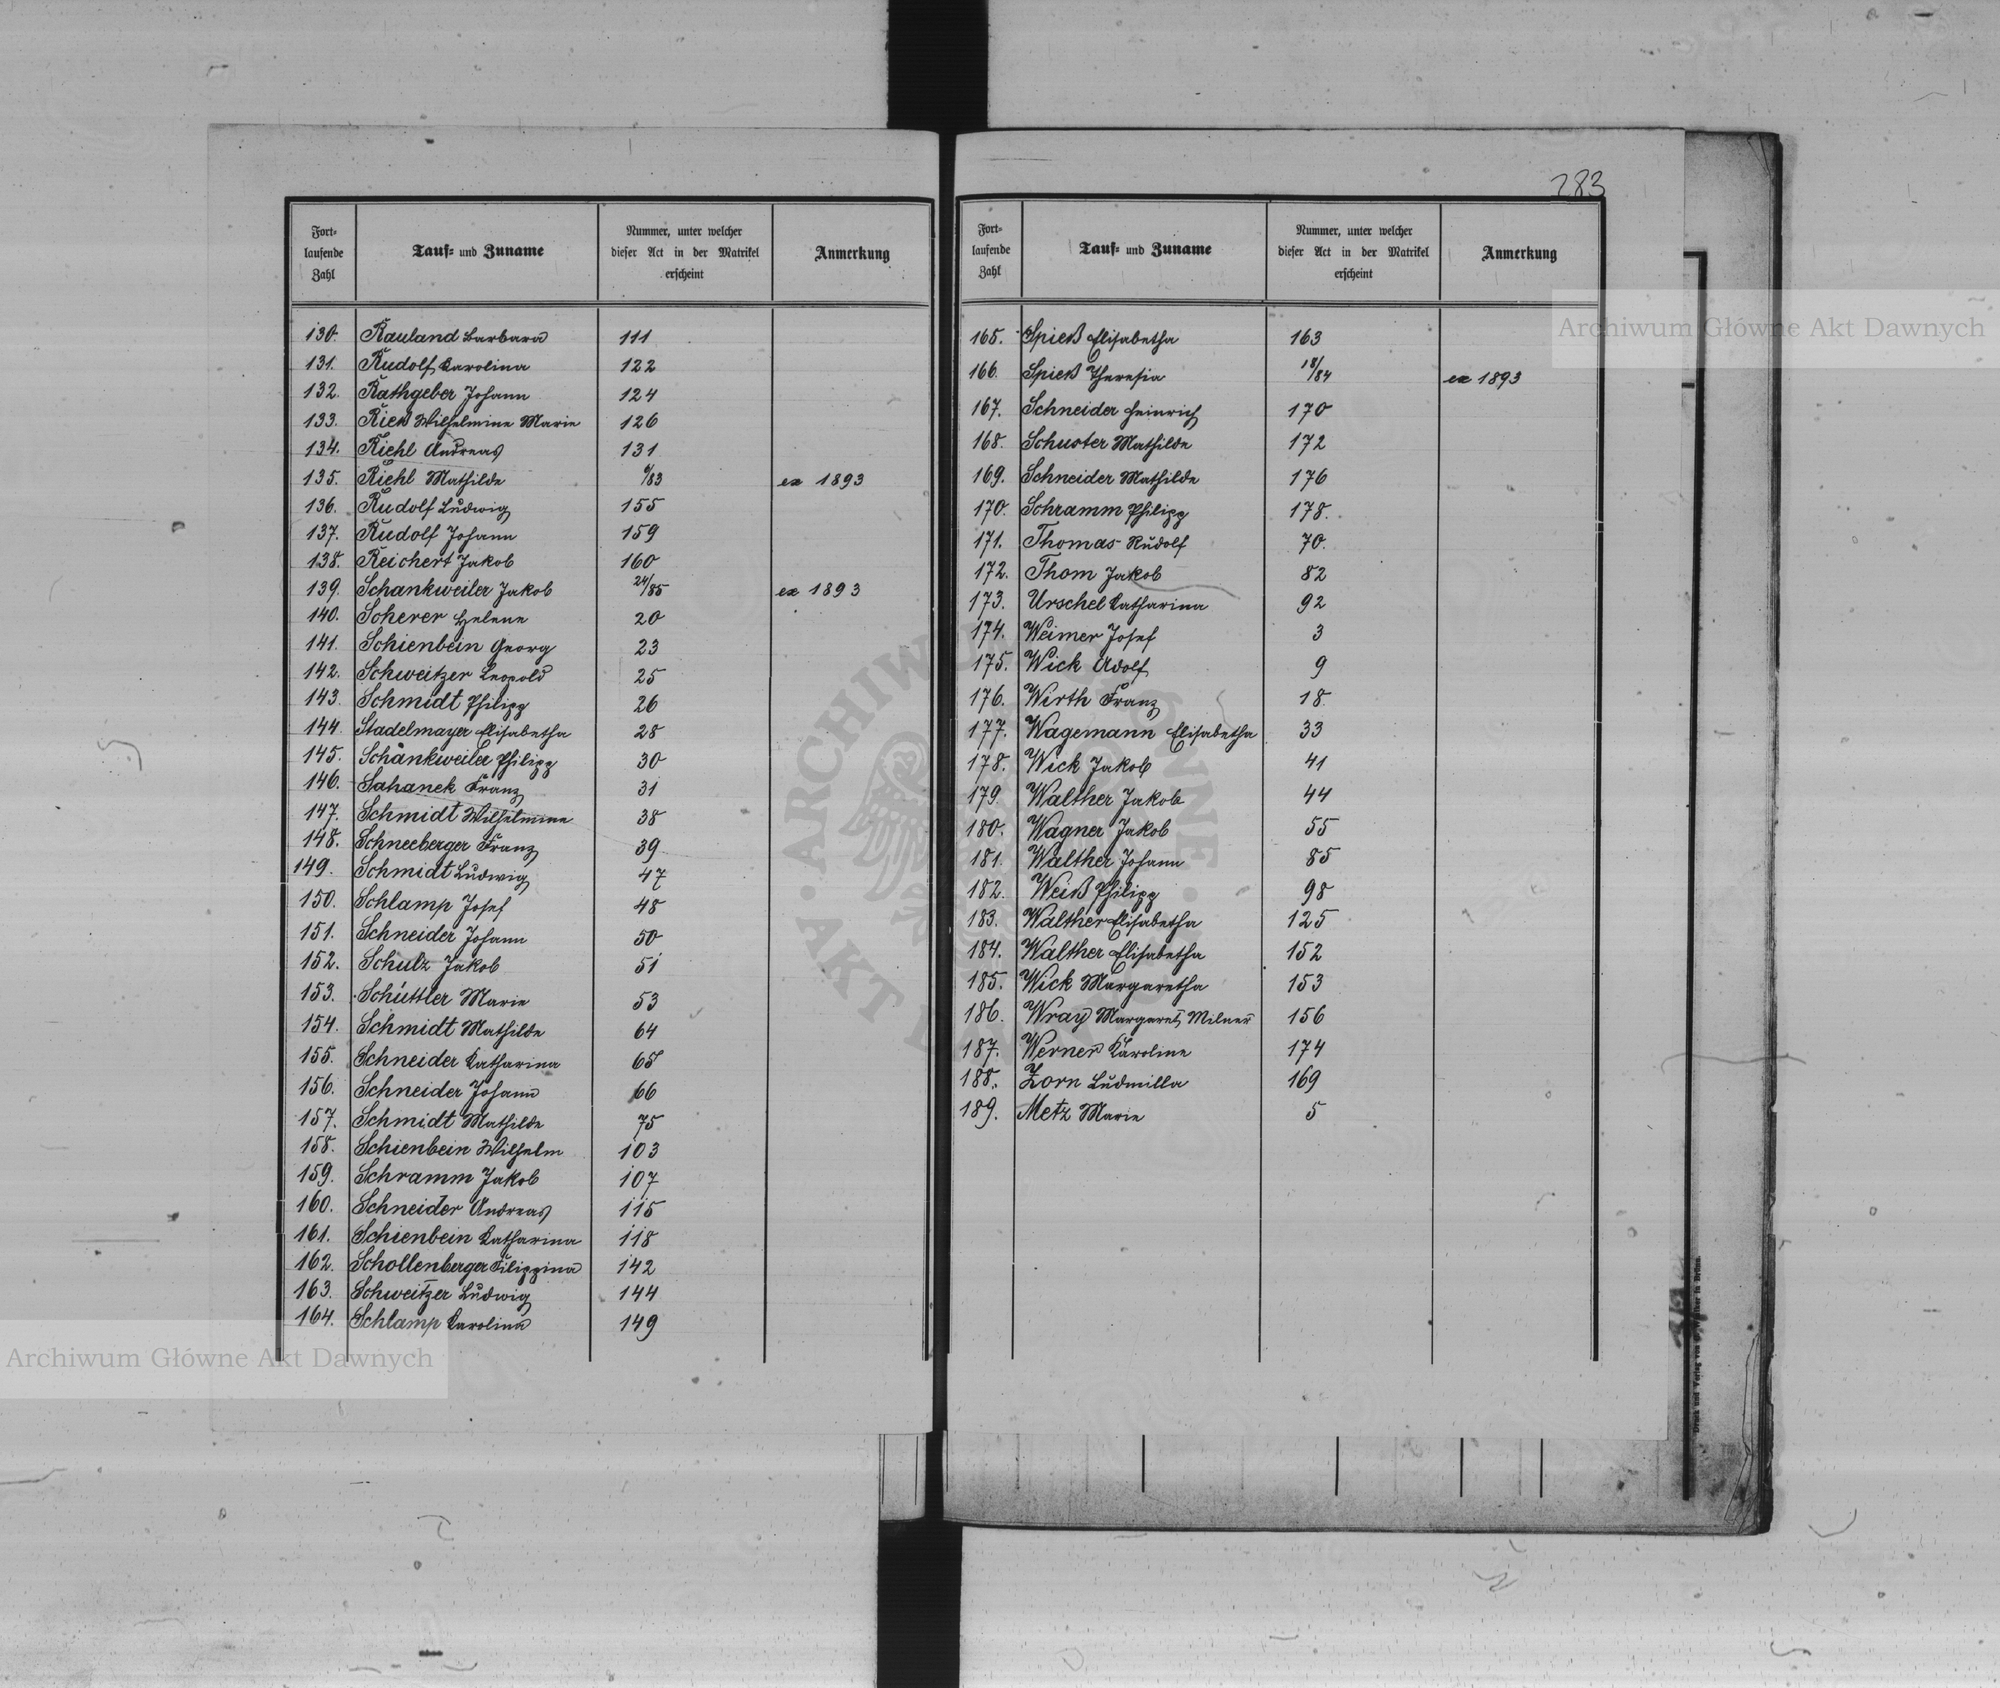 283
Fort-
laufende
Zahl
Tauf- und Zuname
Nummer, unter welcher
dieser Act in der Matrikel
erscheint
Anmerkung
130. Rauland Barbara 111
131. Rudolf Karolina 122
132. Rathgeber Johann 124
133. Rieß Wilhelmine Marie 126
134. Riehl Andreas 131
135. Riehl Mathilde /83 ex 1893
136. Rudolf Ludwig 155
137. Rudolf Johann 159
138. Reichert Jakob 160
139. Schankweiler Jakob 24/85 ex 1893
140. Scherer Helene 20
141. Schienbein Georg 23
142. Schweitzer Leopold 25
143. Schmidt Philipp 26
144. Stadelmayer Elisabetha 28
145. Schankweiler Philipp 30
146. Sahanek Franz 31
147. Schmidt Wilhelmine 38
148. Schneeberger Franz 39
149. Schmidt Ludwig 47
150. Schlamp Josef 48
151. Schneider Johann 50
152. Schulz Jakob 51
153. Schüttler Marie 53
154. Schmidt Mathilde 64
155. Schneider Katharina 65
156. Schneider Johann 66
157. Schmidt Mathilde 75
158. Schienbein Wilhelm 103
159. Schramm Jakob 107
160. Schneider Andreas 115
161. Schienbein Katharina 118
162. Schollenberger Filippina 142
163. Schweitzer Ludwig 144
164. Schlamp Karolina 149
Fort-
laufende
Zahl
Tauf- und Zuname
Nummer, unter welcher
dieser Act in der Matrikel
erscheint
Anmerkung
165. Spieß Elisabetha 163
166. Spieß Theresia 18/84 ex 1893
167. Schneider Heinrich 170
168. Schuster Mathilde 172
169. Schneider Mathilde 176
170. Schramm Philipp 178.
171. Thomas Rudolf 70.
172. Thom Jakob 82
173. Urschel Katharina 92
174. Weimer Josef 3
175. Wick Adolf 9
176. Wirth Franz 18
177. Wagemann Elisabetha 33
178. Wick Jakob 41
179. Walther Jakob 44
180. Wagner Jakob 55
181. Walther Johann 85
182. Weiß Philipp 98
183. Walther Elisabetha 125
184. Walther Elisabetha 152
185. Wick Margaretha 153
186. Wray Margaret Milner 156
187. Werner Karoline 174
188. Zorn Ludmilla 169
189. Metz Marie 5
Archiwum Główne Akt Dawnych
Archiwum Główne Akt Dawnych